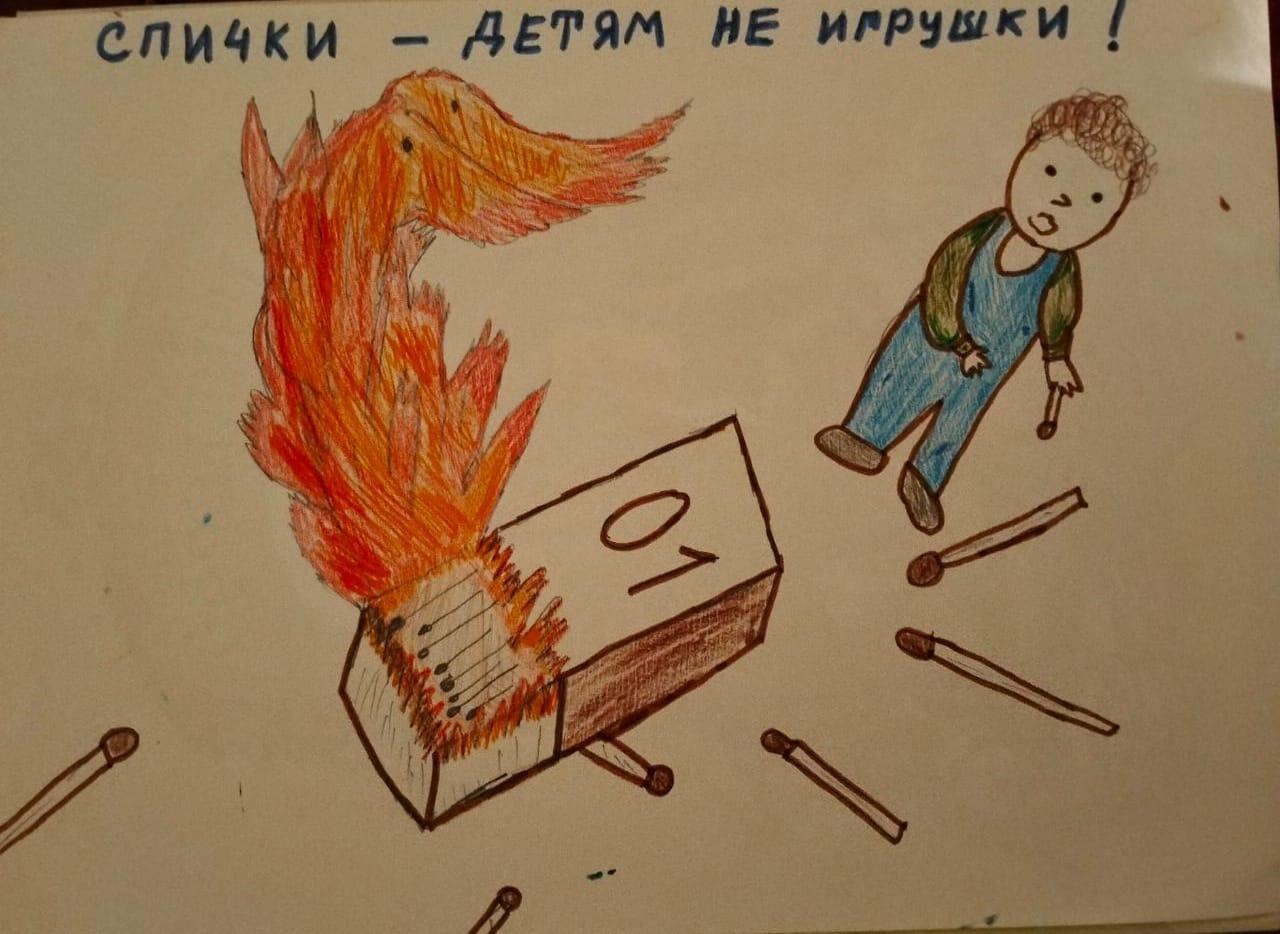 СПИЧКИ – ДЕТЯМ НЕ ИГРУШКИ!
01